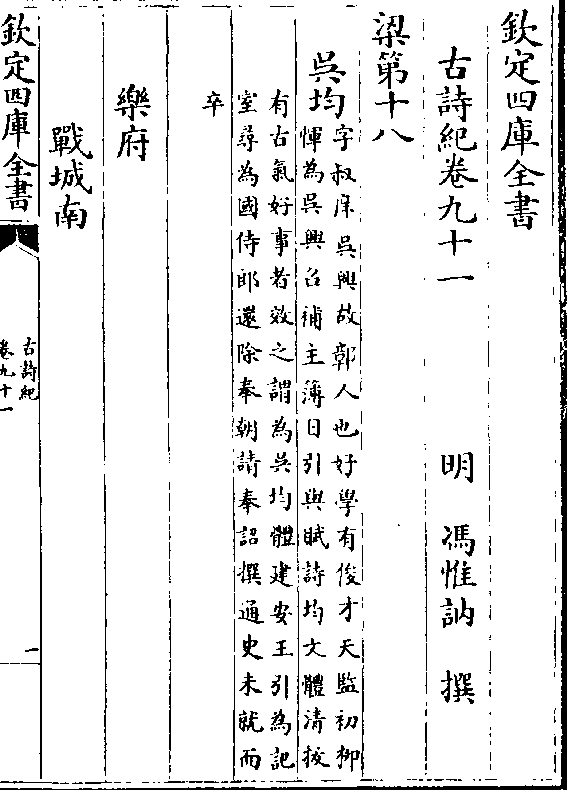 欽定四庫全書
古詩紀卷九十一
明 馮惟訥 撰
梁第十八
吳均
字叔庠吳興故鄣人也好學有俊才天監初栁
惲為吳興召補主簿日引與賦詩均文體清抜
有古氣好事者效之謂為吳均體建安王引為記
室尋為國侍郎還除奉朝請奉詔撰通史未就而
卒
樂府
戰城南
欽定四庫全書
古詩紀
卷九十一
一